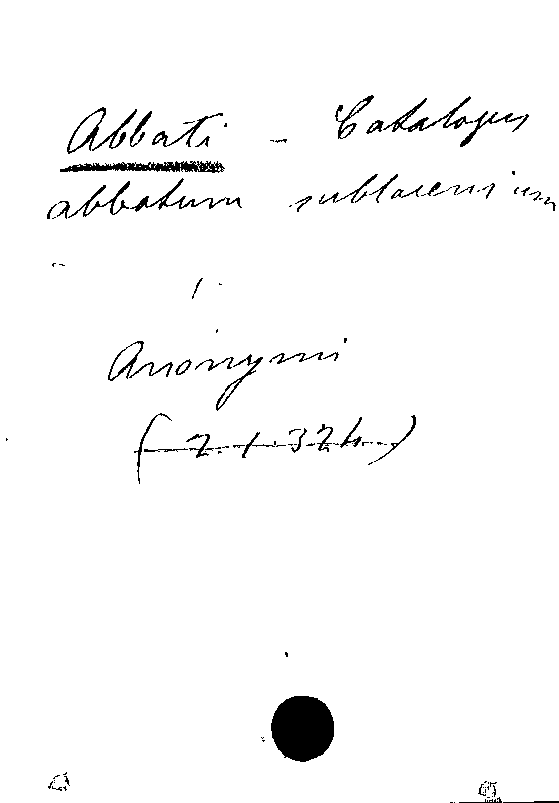 Abbati - Catalogus
abbatum sublacensium
Anonymi
(2.1.324.)